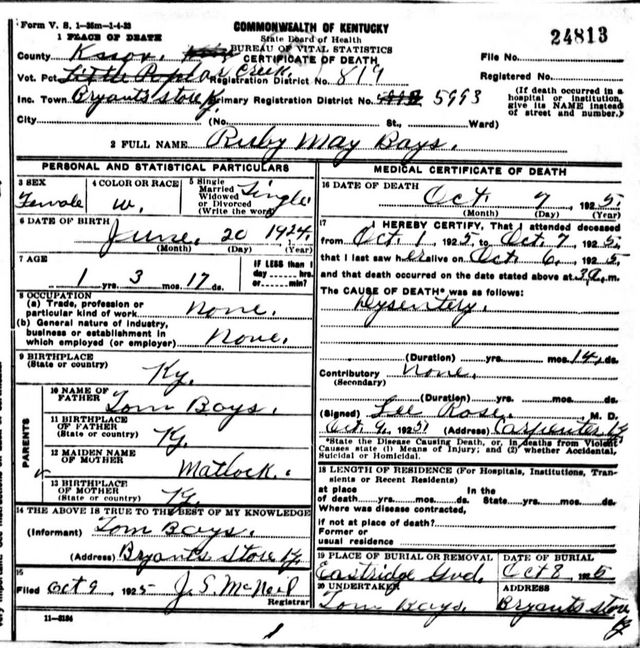 Form V. S. 1-35m-1-4-23
COMMONWEALTH OF KENTUCKY
State Board of Health
BUREAU OF VITAL STATISTICS
CERTIFICATE OF DEATH
24813
1 PLACE OF DEATH
County Knox,
File No.
Vot. Pct Little Poplar Creek. Registration District No. 819
Registered No.
Inc. Town Bryants store Ky. Primary Registration District No. 5993
(If death occurred in a hospital or institution, give its NAME instead of street and number.)
City (No. St., Ward)
2 FULL NAME Ruby May Bays.
PERSONAL AND STATISTICAL PARTICULARS
3 SEX Female
4 COLOR OR RACE W.
5 Single Married Widowed or Divorced (Write the word) Single
6 DATE OF BIRTH
June. 20 1924.
(Month) (Day) (Year)
7 AGE
IF LESS than 1 day hrs. or min?
1 yrs. 3 mos. 17 ds.
8 OCCUPATION
(a) Trade, profession or particular kind of work None.
(b) General nature of industry, business or establishment in which employed (or employer) None.
9 BIRTHPLACE
(State or country) Ky.
PARENTS
10 NAME OF FATHER Tom Bays.
11 BIRTHPLACE OF FATHER (State or country) Ky.
12 MAIDEN NAME OF MOTHER Matlock.
13 BIRTHPLACE OF MOTHER (State or country) Ky.
14 THE ABOVE IS TRUE TO THE BEST OF MY KNOWLEDGE
(Informant) Tom Bays.
(Address) Bryants Store Ky.
15
Filed Oct 9, 1925 J. S. McNeil
Registrar
11-3184
MEDICAL CERTIFICATE OF DEATH
16 DATE OF DEATH
Oct. 7, 1925.
(Month) (Day) (Year)
17 I HEREBY CERTIFY, That I attended deceased
from Oct. 1, 1925 to Oct. 7, 1925.
that I last saw her alive on Oct. 6, 1925
and that death occurred on the date stated above at m.
The CAUSE OF DEATH* was as follows:
Dysentery.
(Duration) yrs. mos. 14 ds.
Contributory None.
(Secondary)
(Duration) yrs. mos. ds.
(Signed) Lee Rose, M. D.
Oct 192 (Address) Carpenter Ky
*State the Disease Causing Death, or, in deaths from Violent Causes state (1) Means of Injury; and (2) whether Accidental, Suicidal or Homicidal.
18 LENGTH OF RESIDENCE (For Hospitals, Institutions, Transients or Recent Residents)
at place of death yrs. mos. ds. In the State yrs. mos. ds.
Where was disease contracted, if not at place of death?
Former or usual residence
19 PLACE OF BURIAL OR REMOVAL
Eastridge Gvd.
DATE OF BURIAL
Oct 8 192
20 UNDERTAKER
Tom Bays.
ADDRESS
Bryants store Ky